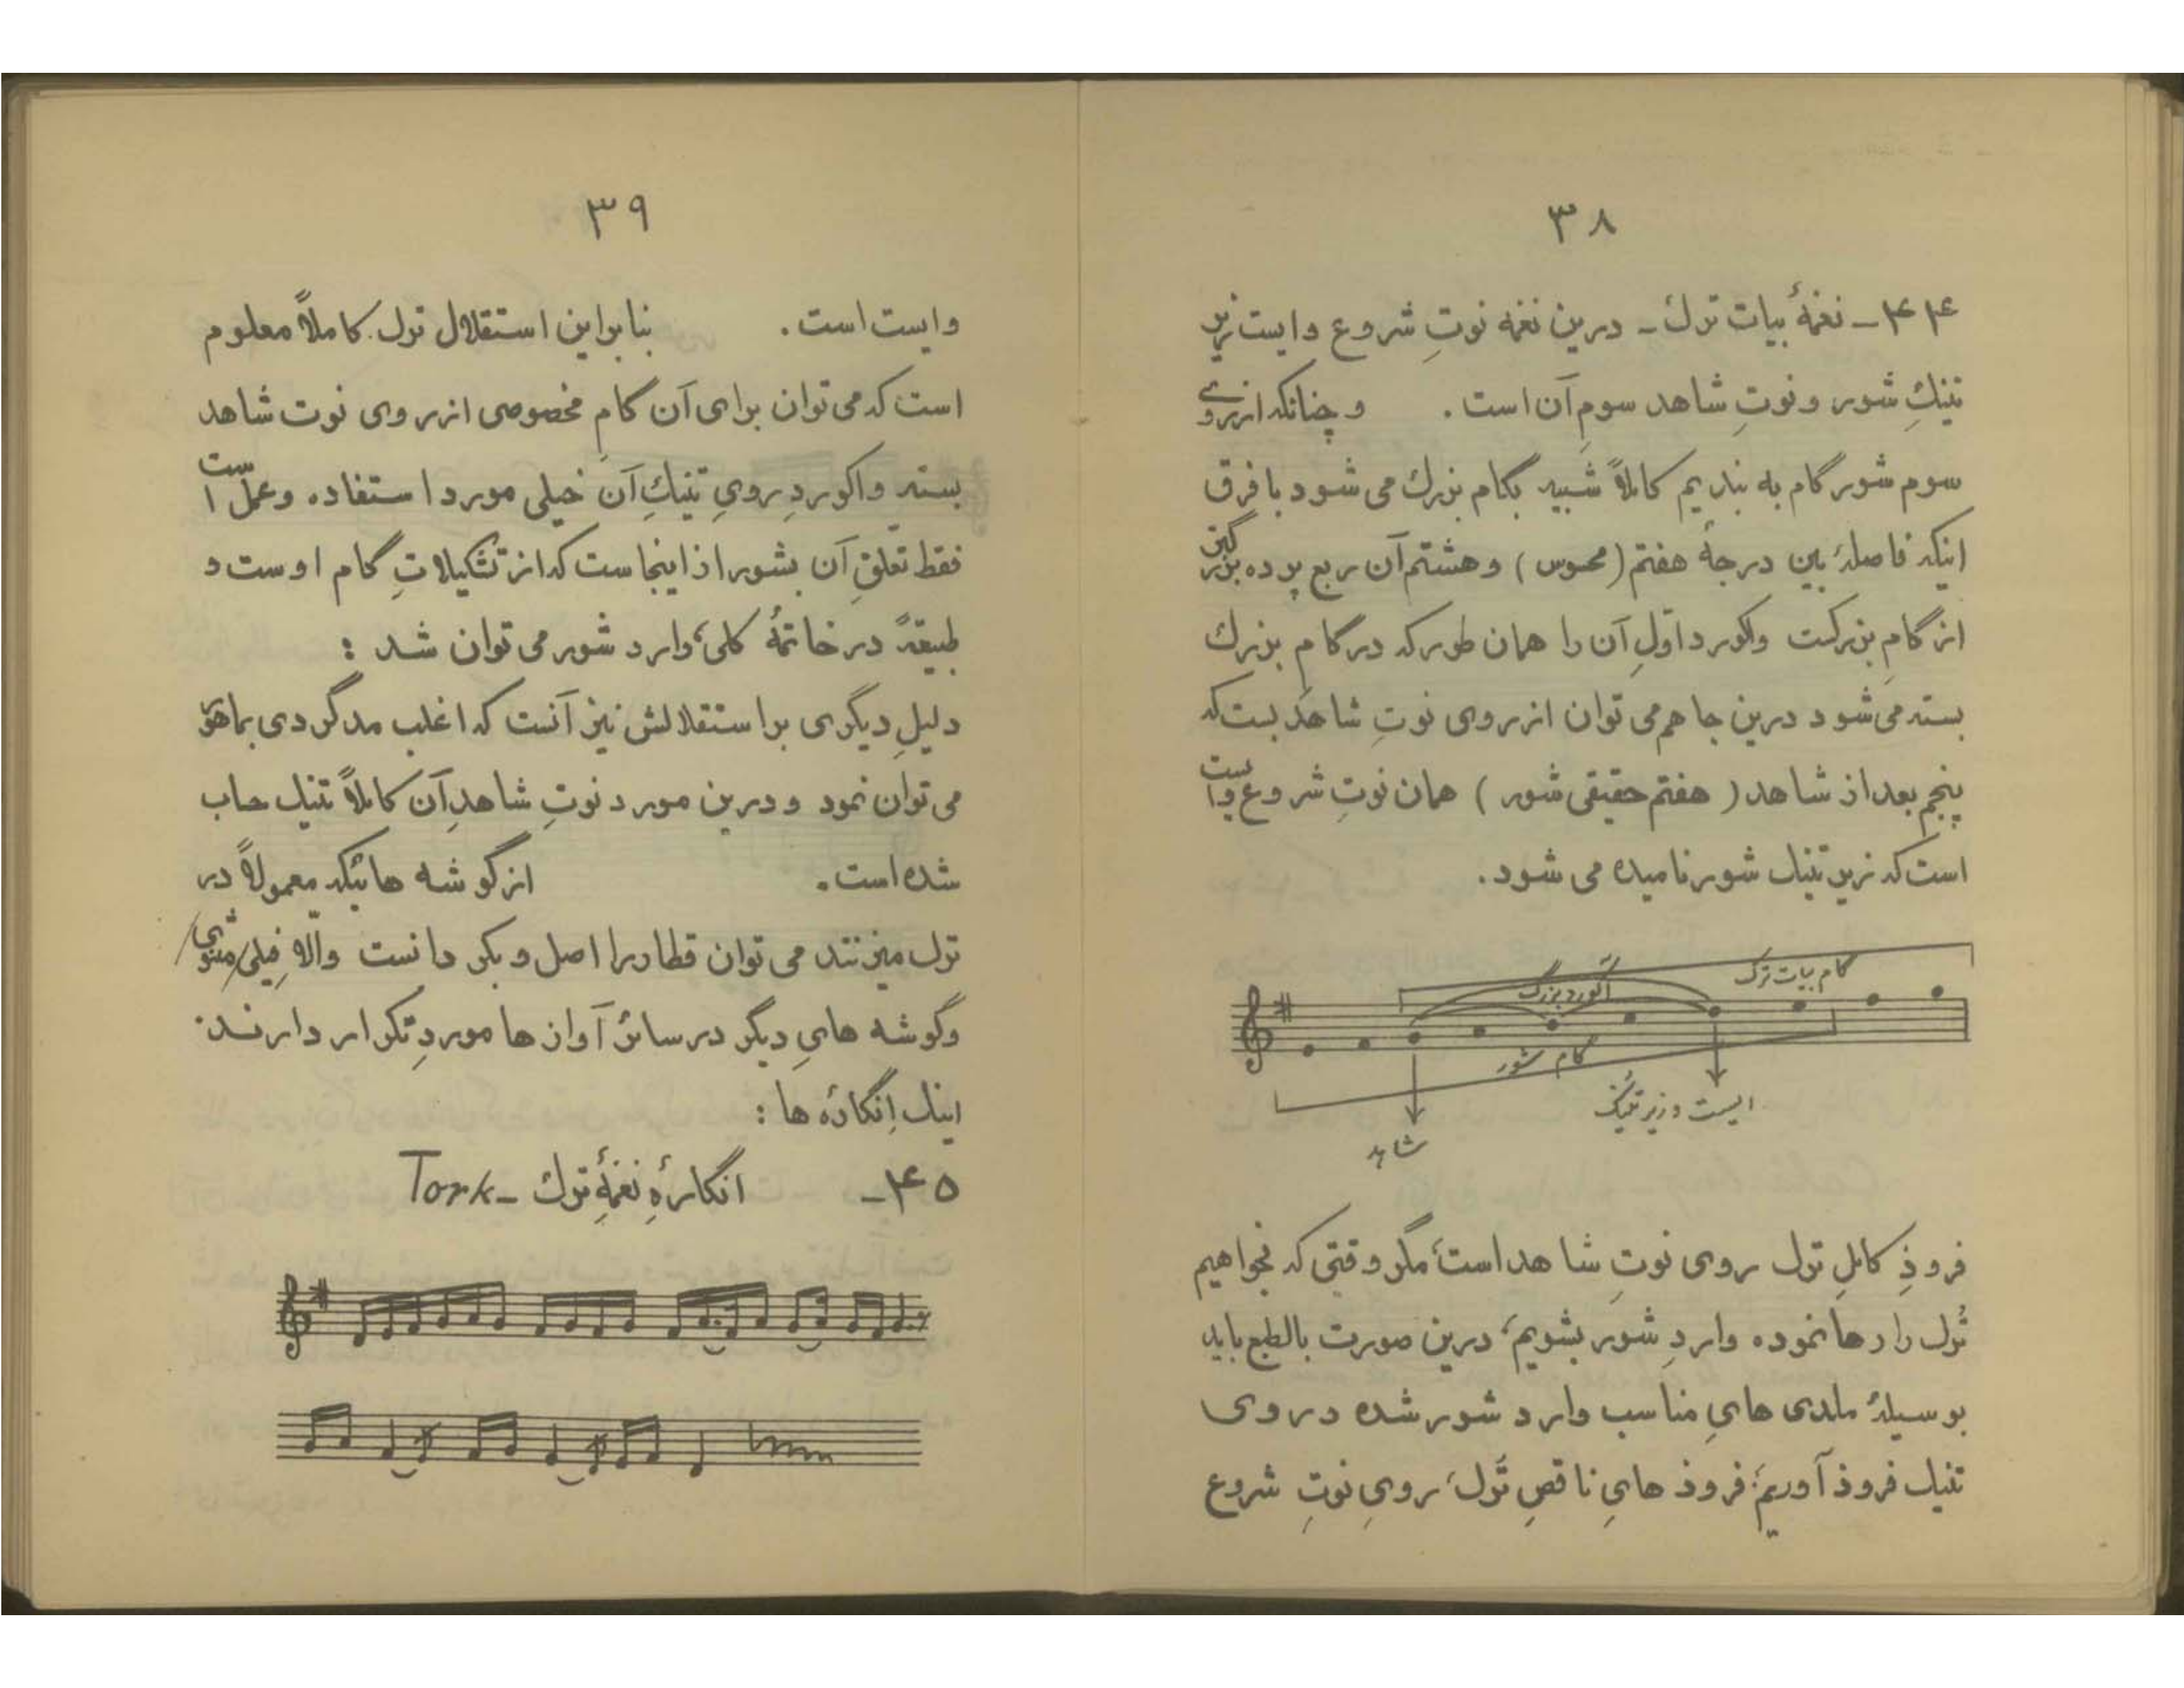 ۳۸
۴۴ـ نغمهٔ بیات ترک ـ درین نغمه نوتِ شروع و ایست زیر
تنیکِ شور و نوتِ شاهد سومِ آن است . و چنانکه از روی
سوم شور گام به بندیم کاملاً شبیه بگام بزرگ می شود با فرق
اینکه فاصلهٔ بین درجهٔ هفتم (محسوس) و هشتم آن ربع پرده بزرگتر
از گامِ بزرگست و اکورد اولِ آن را همان طور که در گام بزرگ
بسته می شود درین جا هم می توان از روی نوتِ شاهد بست که
پنجم بعد از شاهد ( هفتم حقیقی شور ) همان نوتِ شروع و ایست
است که زیر تنیک شور نامیده می شود.
گام بیات ترک
آکورد بزرگ
گام شور
ایست و زیر تنیک
شاهد
فرودِ کاملِ ترک روی نوتِ شاهد است، مگر وقتی که بخواهیم
تُرک را رها نموده واردِ شور بشویم، درین صورت بالطبع باید
بوسیلهٔ ملدی هایِ مناسب وارد شور شده در روی
تنیک فرود آوریم، فرود هایِ ناقصِ تُرک، رویِ نوتِ شروع
۳۹
و ایست است . بنا براین استقلال ترک کاملاً معلوم
است که می توان برای آن گامِ مخصوصی از روی نوت شاهد
بسته و اکوردِ رویِ تنیکِ آن خیلی مورد استفاده و عمل است
فقط تعلقِ آن بشور از اینجاست که از تشکیلاتِ گام اوست و
طبیعةً در خاتمهٔ کلی، وارد شور می توان شد :
دلیلِ دیگری بر استقلالش نیز آنست که اغلب مدگردی بماهور
می توان نمود و درین مورد نوتِ شاهدِ آن کاملاً تنیک حساب
شده است . از گوشه هائیکه معمولاً در
ترک میزنند می توان قطار را اصل و بکر دانست والا فیلی، مثنوی
و گوشه هایِ دیگر در سائر آواز ها موردِ تکرار دارند.
اینک اِنگارهٔ ها :
۴۵ـ انگارهٔ نغمهٔ ترک ـ Tork